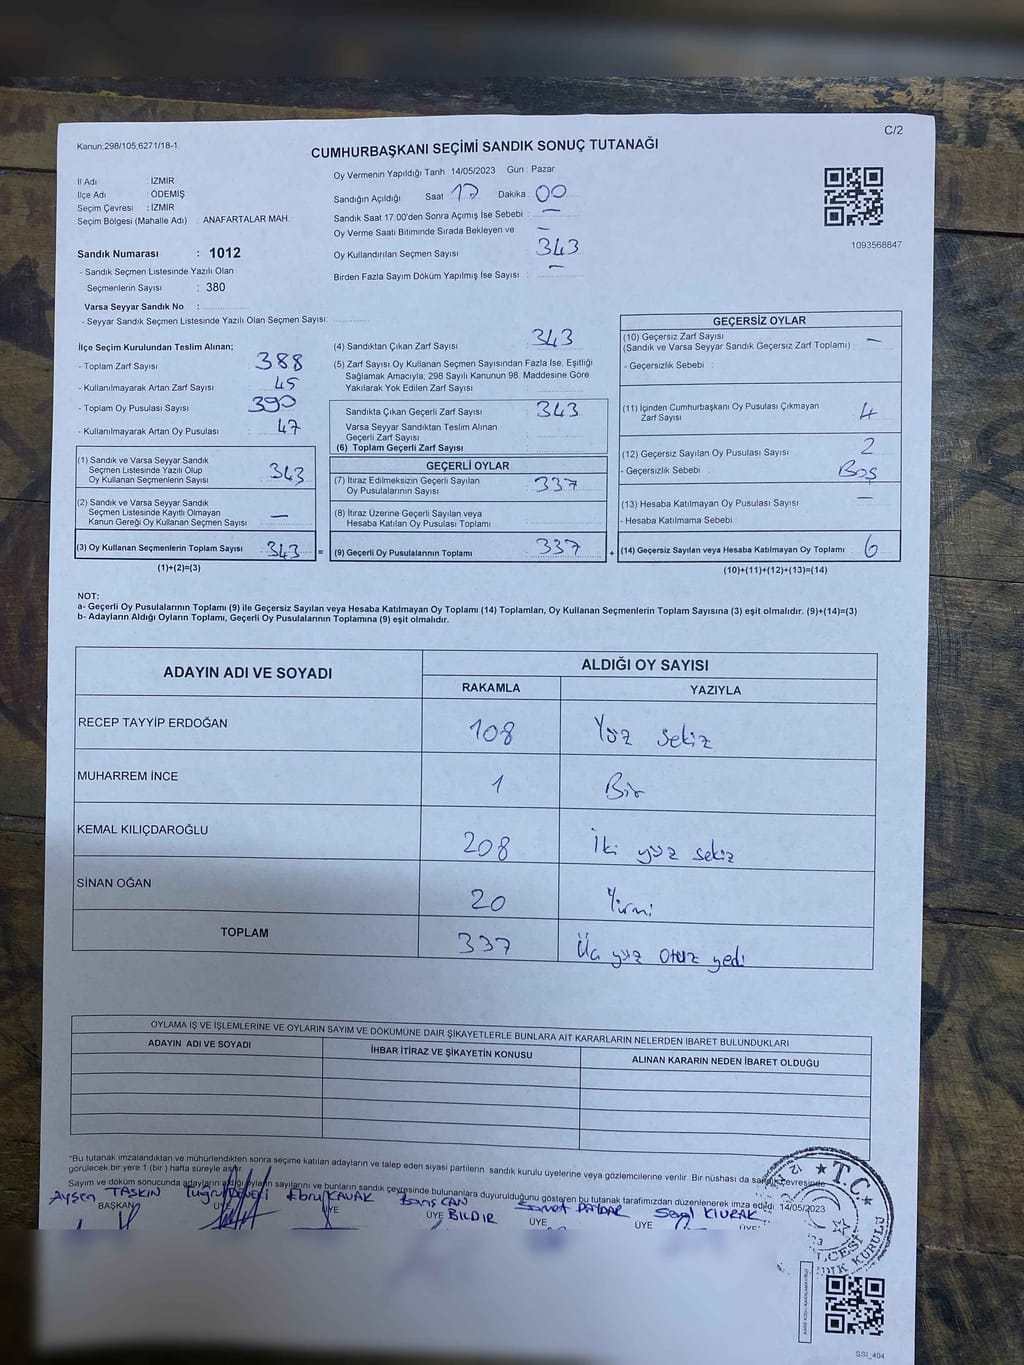 C/2
Kanun:298/105,6271/18-1
CUMHURBAŞKANI SEÇİMİ SANDIK SONUÇ TUTANAĞI
İl Adı : İZMİR
İlçe Adı : ÖDEMİŞ
Seçim Çevresi : İZMİR
Seçim Bölgesi (Mahalle Adı) : ANAFARTALAR MAH.
Sandık Numarası : 1012
- Sandık Seçmen Listesinde Yazılı Olan
Seçmenlerin Sayısı : 380
Varsa Seyyar Sandık No :
- Seyyar Sandık Seçmen Listesinde Yazılı Olan Seçmen Sayısı:
Oy Vermenin Yapıldığı Tarih 14/05/2023 Gün : Pazar
Sandığın Açıldığı Saat 17 Dakika : 00
Sandık Saat 17.00'den Sonra Açımış İse Sebebi : —
Oy Verme Saati Bitiminde Sırada Bekleyen ve —
Oy Kullandırılan Seçmen Sayısı : 343
Birden Fazla Sayım Döküm Yapılmış İse Sayısı : —
1093568847
İlçe Seçim Kurulundan Teslim Alınan;
- Toplam Zarf Sayısı : 388
- Kullanılmayarak Artan Zarf Sayısı : 45
- Toplam Oy Pusulası Sayısı : 390
- Kullanılmayarak Artan Oy Pusulası : 47
(1) Sandık ve Varsa Seyyar Sandık
Seçmen Listesinde Yazılı Olup
Oy Kullanan Seçmenlerin Sayısı : 343
(2) Sandık ve Varsa Seyyar Sandık
Seçmen Listesinde Kayıtlı Olmayan
Kanun Gereği Oy Kullanan Seçmen Sayısı : —
(3) Oy Kullanan Seçmenlerin Toplam Sayısı : 343 =
(1)+(2)=(3)
(4) Sandıktan Çıkan Zarf Sayısı : 343
(5) Zarf Sayısı Oy Kullanan Seçmen Sayısından Fazla İse, Eşitliği
Sağlamak Amacıyla; 298 Sayılı Kanunun 98. Maddesine Göre
Yakılarak Yok Edilen Zarf Sayısı :
Sandıkta Çıkan Geçerli Zarf Sayısı : 343
Varsa Seyyar Sandıktan Teslim Alınan
Geçerli Zarf Sayısı :
(6) Toplam Geçerli Zarf Sayısı :
GEÇERLİ OYLAR
(7) İtiraz Edilmeksizin Geçerli Sayılan
Oy Pusulalarının Sayısı : 337
(8) İtiraz Üzerine Geçerli Sayılan veya
Hesaba Katılan Oy Pusulası Toplamı :
(9) Geçerli Oy Pusulalarının Toplamı : 337 +
GEÇERSİZ OYLAR
(10) Geçersiz Zarf Sayısı
(Sandık ve Varsa Seyyar Sandık Geçersiz Zarf Toplamı) : —
- Geçersizlik Sebebi :
(11) İçinden Cumhurbaşkanı Oy Pusulası Çıkmayan
Zarf Sayısı : 4
(12) Geçersiz Sayılan Oy Pusulası Sayısı : 2
- Geçersizlik Sebebi : Boş
(13) Hesaba Katılmayan Oy Pusulası Sayısı : —
- Hesaba Katılmama Sebebi :
(14) Geçersiz Sayılan veya Hesaba Katılmayan Oy Toplamı : 6
(10)+(11)+(12)+(13)=(14)
NOT:
a- Geçerli Oy Pusulalarının Toplamı (9) ile Geçersiz Sayılan veya Hesaba Katılmayan Oy Toplamı (14) Toplamları, Oy Kullanan Seçmenlerin Toplam Sayısına (3) eşit olmalıdır. (9)+(14)=(3)
b- Adayların Aldığı Oyların Toplamı, Geçerli Oy Pusulalarının Toplamına (9) eşit olmalıdır.
ADAYIN ADI VE SOYADI
ALDIĞI OY SAYISI
RAKAMLA YAZIYLA
RECEP TAYYİP ERDOĞAN 108 Yüz sekiz
MUHARREM İNCE 1 Bir
KEMAL KILIÇDAROĞLU 208 İki yüz sekiz
SİNAN OĞAN 20 Yirmi
TOPLAM 337 Üç yüz otuz yedi
OYLAMA İŞ VE İŞLEMLERİNE VE OYLARIN SAYIM VE DÖKÜMÜNE DAİR ŞİKAYETLERLE BUNLARA AİT KARARLARIN NELERDEN İBARET BULUNDUKLARI
ADAYIN ADI VE SOYADI İHBAR İTİRAZ VE ŞİKAYETİN KONUSU ALINAN KARARIN NEDEN İBARET OLDUĞU
*Bu tutanak imzalandıktan ve mühürlendikten sonra seçime katılan adayların ve talep eden siyasi partilerin sandık kurulu üyelerine veya gözlemcilerine verilir. Bir nüshası da sandık çevresinde
görülecek bir yere 1 (bir) hafta süreyle asılır
Sayım ve döküm sonucunda adayların aldığı oyların sayılarını ve bunların sandık çevresinde bulunanlara duyurulduğunu gösteren bu tutanak tarafımızdan düzenlenerek imza edildi. 14/05/2023
Aysen TAŞKIN Ebru KAVAK Barış CAN
BAŞKAN ÜYE ÜYE ÜYE BİLDİR ÜYE ÜYE ÜYE
T.C.
SSI_404